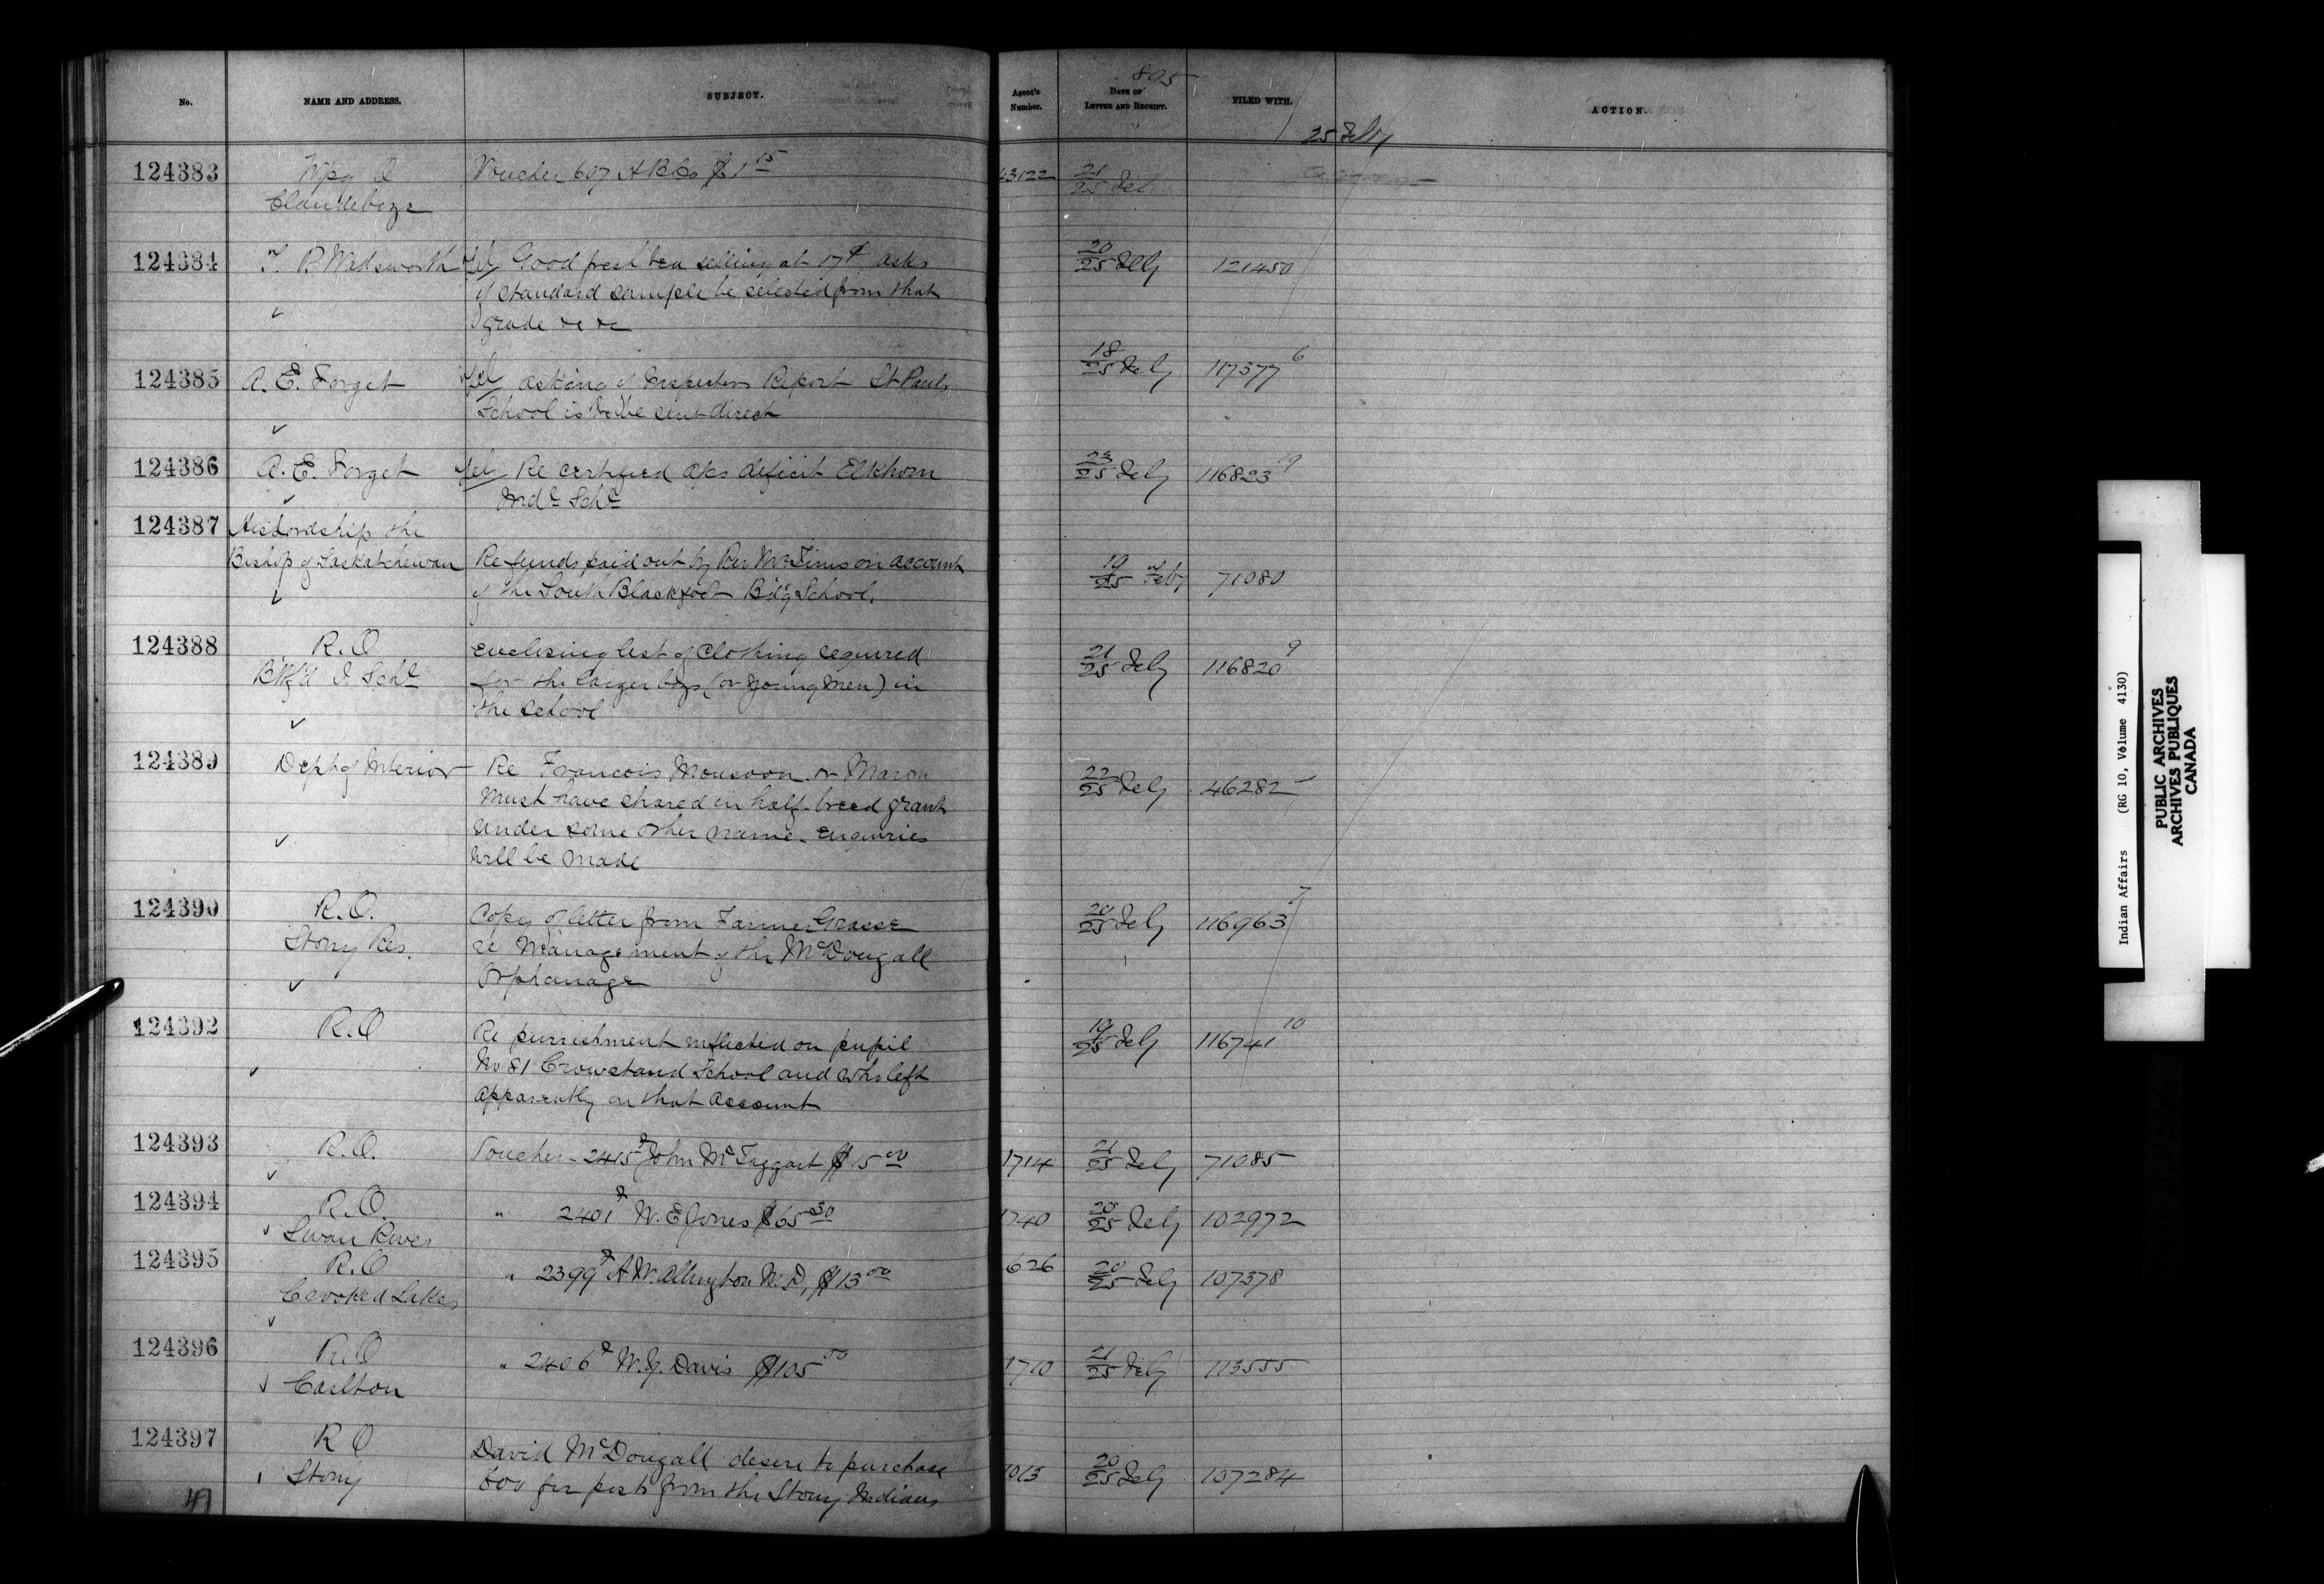 No. NAME AND ADDRESS. SUBJECT. Agent's Number. DATE OF LETTER AND RECEIPT. FILED WITH. ACTION.
895
25 Feby
124383 Wpg Voucher 607 H B Co $1 15 13122 21/25 Feb
Clandeboye
124384 T. P. Wadsworth Tel Good fresh tea selling at 17¢ asks 20/25 Feby 121450
if standard sample be selected from that
grade &c &c
124385 A. E. Forget Tel asking if Inspectors Report St Pauls 18/25 Feby 117377 6
School is to be sent direct
124386 A. E. Forget Tel Re certified a/cs deficit Elkhorn 23/25 Feby 116823 19
Indl Schl
124387 His Lordship the
Bishop of Saskatchewan Re funds paid out by Rev Mr Tims on account 19/25 Feby 71080
of the South Blackfoot B'd'g School.
124388 R. O enclosing list of Clothing required 21/25 Feby 116820 9
B'tlf'd I. Schl for the larger boys (or young men) in
the school
124389 Dept of Interior Re Francois Monsoon or Maron 22/25 Feby 46282
Must have shared in half-breed grant
under some other name. enquiries
will be made
124390 R. O. Copy of letter from Farmer Grasse 20/25 Feby 116963 7
Stony Res. re Management of the McDougall
Orphanage
124392 R. O Re punishment inflicted on pupil 19/25 Feby 116741 10
No 81 Crowstand School and who left
apparently on that account
124393 R. O. Voucher - 2415 John McTaggart $15 00 1714 21/25 Feby 71085
124394 R. O. " 2401 W. E Jones $65 30 1740 20/25 Feby 102972
Swan River
124395 R. O " 2399 A W Allingham M. D, $13 00 626 20/25 Feby 107378
Crooked Lakes
124396 R. O " 2406 W. Y. Davis $105 00 1710 21/25 Feby 113555
Carlton
124397 R O David McDougall desire to purchase 1013 20/25 Feby 107284
Stony 600 fir posts from the Stony Indians
Indian Affairs (RG 10, Volume 4130)
PUBLIC ARCHIVES
ARCHIVES PUBLIQUES
CANADA